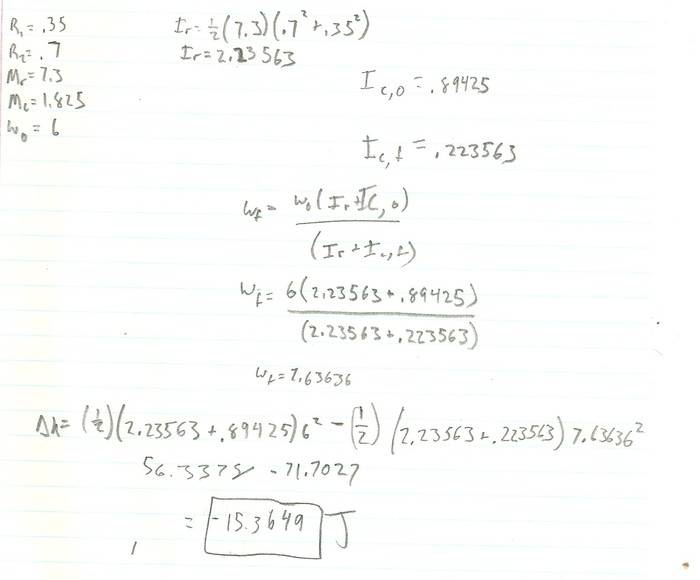 R₁ = .35
R₂ = .7
Mr = 7.3
Mc = 1.825
ω₀ = 6
Ir = ½(7.3)(.7² + .35²)
Ir = 2.23563
I c,0 = .89425
I c,f = .223563
ωf = ω₀(Ir + Ic,0)
(Ir + Ic,f)
ωf = 6(2.23563 + .89425)
(2.23563 + .223563)
ωf = 7.63636
Δk = (½)(2.23563 + .89425)6² - (½)(2.23563 + .223563)7.63636²
56.3375 - 71.7027
= -15.3649 J